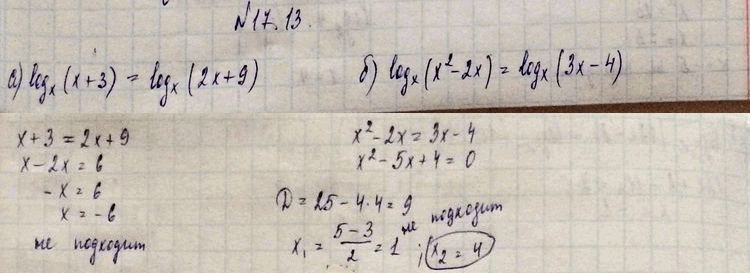 №17.13.
а) logₓ(x+3) = logₓ(2x+9)
б) logₓ(x²-2x) = logₓ(3x-4)
x+3 = 2x+9
x-2x = 6
-x = 6
x = -6
не подходит
x²-2x = 3x-4
x²-5x+4 = 0
D = 25-4·4 = 9
x₁ = (5-3)/2 = 1 не подходит; x₂ = 4